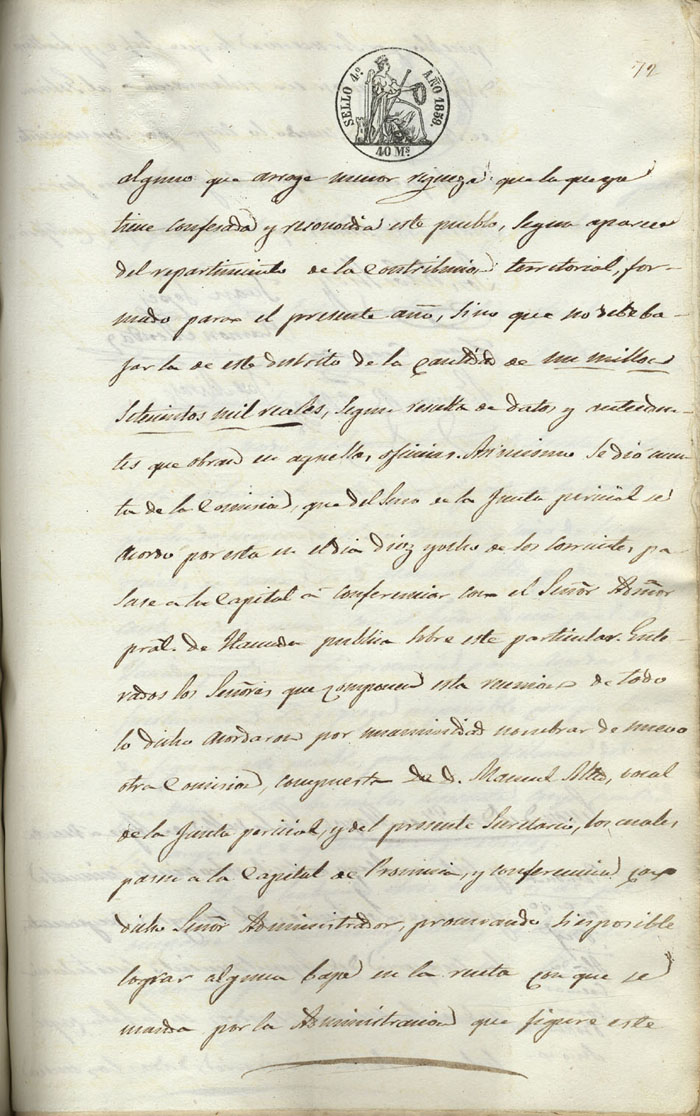 72
SELLO 4º AÑO 1859.
40 Mˢ
alguno que arroje menor riqueza que la que ya
tiene confesada y reconocida este pueblo, segun aparece
del repartimiento de la Contribucion territorial, for-
mado para el presente año, sino que no debe ba-
jarla de este distrito de la cantidad de un millon
setecientos mil reales, segun resulta de datos y anteceden-
tes que obran en aquellas oficinas. Asimismo se dió cuen-
ta de la Comision, que del Seno de la Junta pericial se
acordo por esta en el dia diez y ocho de los corrientes, pa
sase a la Capital á conferenciar con el Señor Admor
pral. de Hacienda publica sobre este particular. Ente-
rados los Señores que componen esta reunion de todo
lo dicho acordaron por unanimidad nombrar de nuevo
otra Comision, compuesta de D. Manuel, vocal
de la Junta pericial, y del presente Secretario, los cuales
pasen a la Capital de Provincia, y conferencien con
dicho Señor Administrador, procurando si es posible
lograr alguna baja en la cuota con que se
manda por la Administracion que figure este